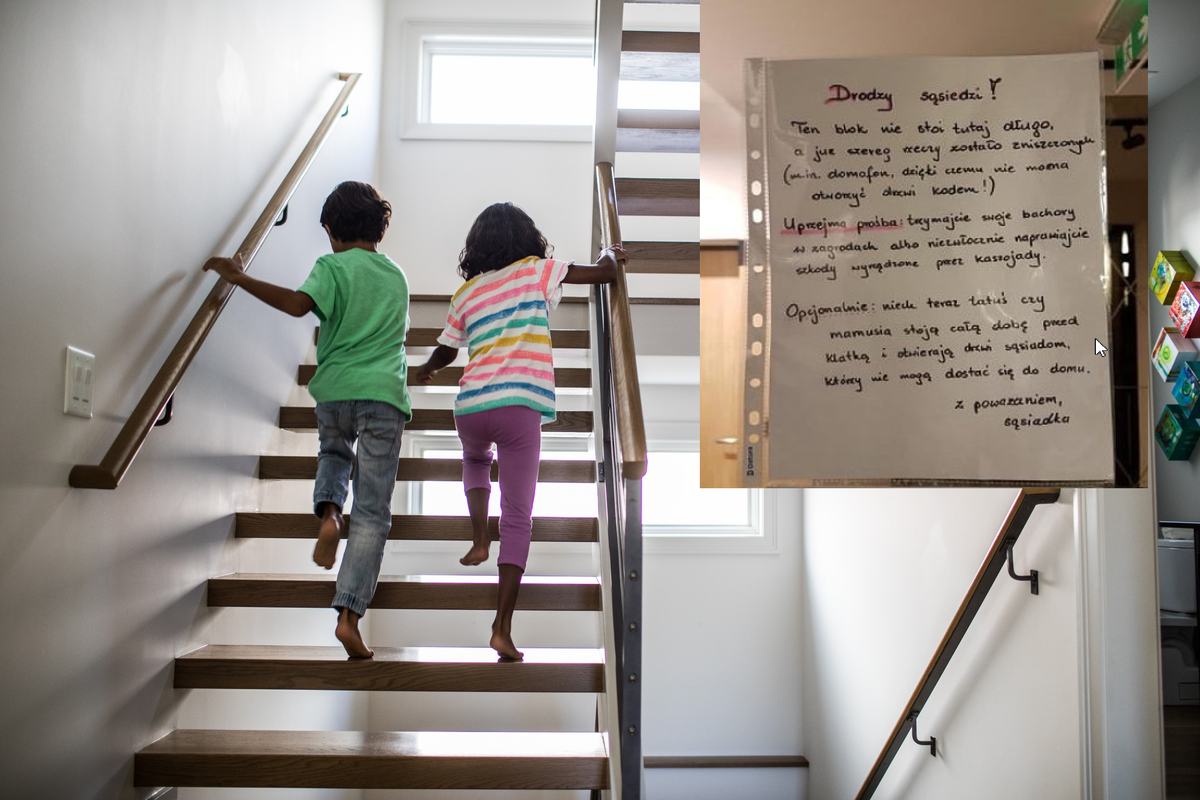 Drodzy sąsiedzi!
Ten blok nie stoi tutaj długo,
a już szereg rzeczy zostało zniszczonych
(m.in. domofon, dzięki czemu nie można
otworzyć drzwi kodem!)
Uprzejma prośba: trzymajcie swoje bachory
w zagrodach albo niezwłocznie naprawiajcie
szkody wyrządzone przez kaszojady.
Opcjonalnie: niech teraz tatuś czy
mamusia stoją całą dobę przed
klatką i otwierają drzwi sąsiadom,
którzy nie mogą dostać się do domu.
z poważaniem,
sąsiadka